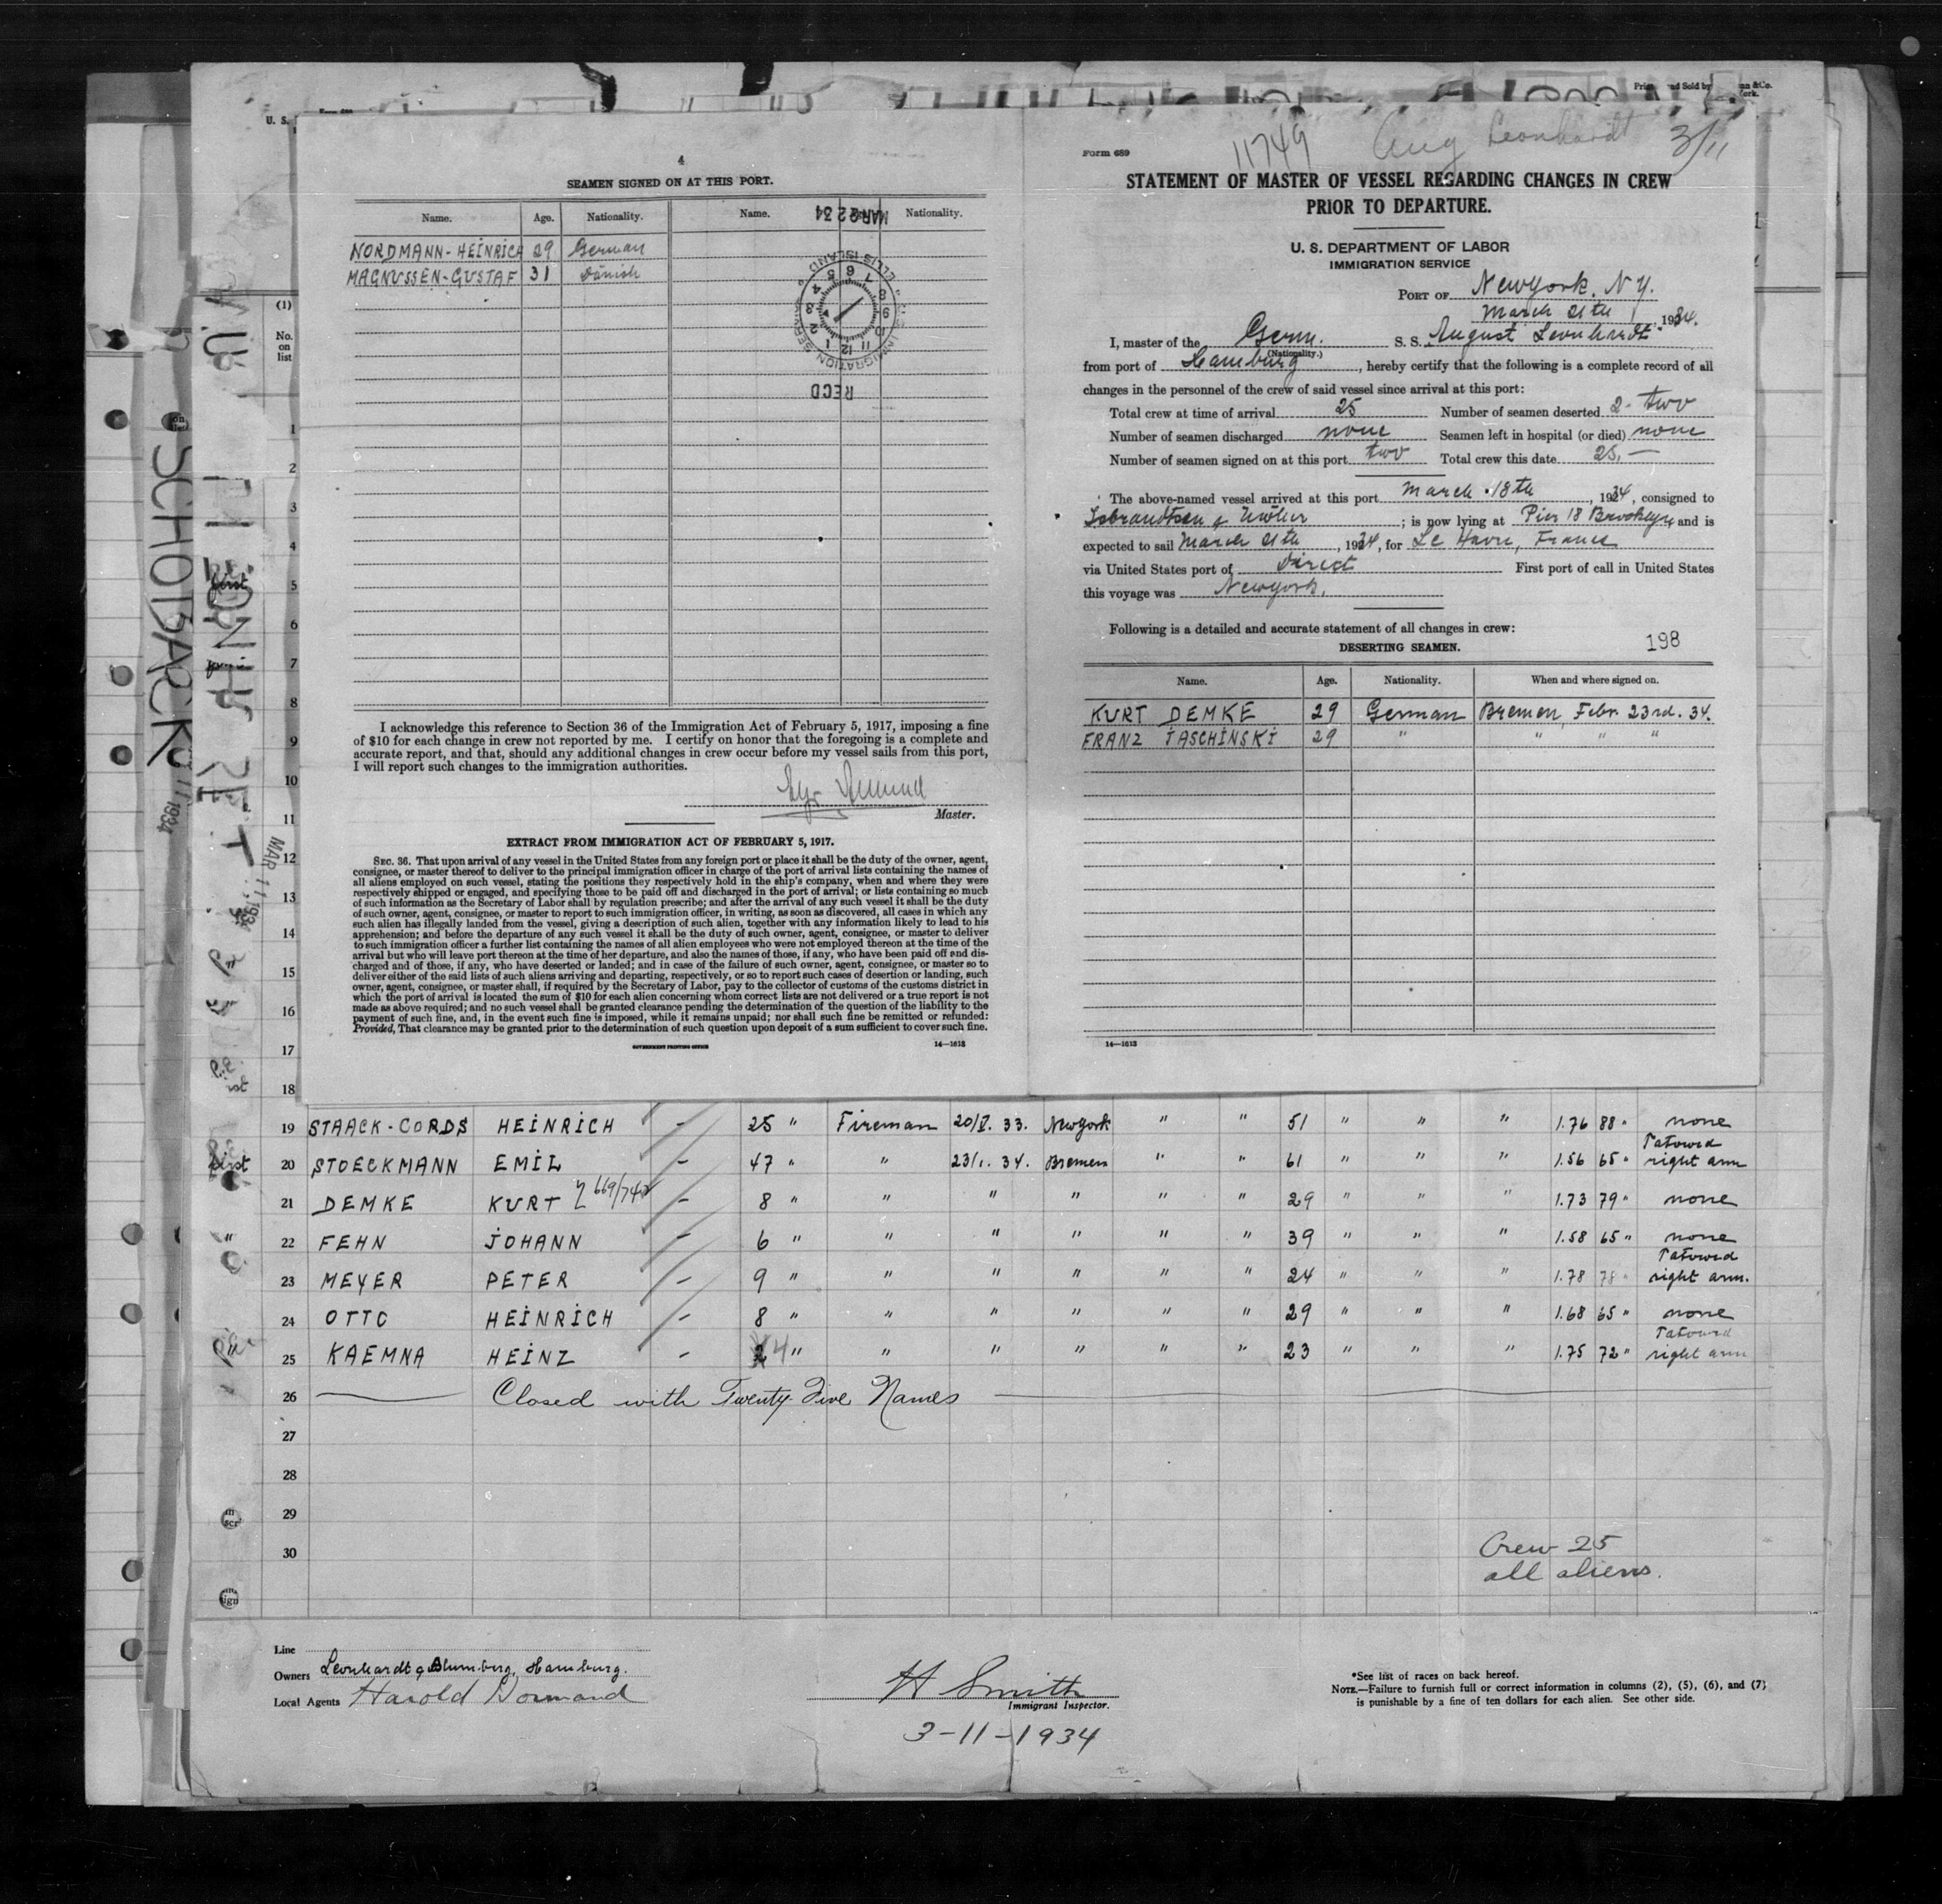 4
SEAMEN SIGNED ON AT THIS PORT.
Name. Age. Nationality. Name. Nationality.
NORDMANN-HEINRICH 29 German
MAGNUSSEN-GUSTAF 31 Danish
MAR 22 34
ELLIS ISLAND
U.S. IMMIGRATION SERVICE
RECD
I acknowledge this reference to Section 36 of the Immigration Act of February 5, 1917, imposing a fine
of $10 for each change in crew not reported by me. I certify on honor that the foregoing is a complete and
accurate report, and that, should any additional changes in crew occur before my vessel sails from this port,
I will report such changes to the immigration authorities.
Master.
EXTRACT FROM IMMIGRATION ACT OF FEBRUARY 5, 1917.
SEC. 36. That upon arrival of any vessel in the United States from any foreign port or place it shall be the duty of the owner, agent,
consignee, or master thereof to deliver to the principal immigration officer in charge of the port of arrival lists containing the names of
all aliens employed on such vessel, stating the positions they respectively hold in the ship's company, when and where they were
respectively shipped or engaged, and specifying those to be paid off and discharged in the port of arrival; or lists containing so much
of such information as the Secretary of Labor shall by regulation prescribe; and after the arrival of any such vessel it shall be the duty
of such owner, agent, consignee, or master to report to such immigration officer, in writing, as soon as discovered, all cases in which any
such alien has illegally landed from the vessel, giving a description of such alien, together with any information likely to lead to his
apprehension; and before the departure of any such vessel it shall be the duty of such owner, agent, consignee, or master to deliver
to such immigration officer a further list containing the names of all alien employees who were not employed thereon at the time of the
arrival but who will leave port thereon at the time of her departure, and also the names of those, if any, who have been paid off and dis-
charged and of those, if any, who have deserted or landed; and in case of the failure of such owner, agent, consignee, or master so to
deliver either of the said lists of such aliens arriving and departing, respectively, or so to report such cases of desertion or landing, such
owner, agent, consignee, or master shall, if required by the Secretary of Labor, pay to the collector of customs of the customs district in
which the port of arrival is located the sum of $10 for each alien concerning whom correct lists are not delivered or a true report is not
made as above required; and no such vessel shall be granted clearance pending the determination of the question of the liability to the
payment of such fine, and, in the event such fine is imposed, while it remains unpaid; nor shall such fine be remitted or refunded:
Provided, That clearance may be granted prior to the determination of such question upon deposit of a sum sufficient to cover such fine.
GOVERNMENT PRINTING OFFICE 14—1613
Form 689
11749 Aug Leonhardt 3/11
STATEMENT OF MASTER OF VESSEL REGARDING CHANGES IN CREW
PRIOR TO DEPARTURE.
U. S. DEPARTMENT OF LABOR
IMMIGRATION SERVICE
PORT OF Newyork, N.Y.
March 21th, 1934.
I, master of the Germ. S. S. August Leonhardt
(Nationality.)
from port of Hamburg, hereby certify that the following is a complete record of all
changes in the personnel of the crew of said vessel since arrival at this port:
Total crew at time of arrival 25 Number of seamen deserted 2- two
Number of seamen discharged none Seamen left in hospital (or died) none
Number of seamen signed on at this port two Total crew this date 25.—
The above-named vessel arrived at this port March 18th, 1934, consigned to
Isbrandtsen & ; is now lying at Pier 18 Brooklyn, and is
expected to sail March 21th, 1934, for Le Havre, France
via United States port of Direct First port of call in United States
this voyage was Newyork.
Following is a detailed and accurate statement of all changes in crew:
198
DESERTING SEAMEN.
Name. Age. Nationality. When and where signed on.
KURT DEMKE 29 German Bremen, Febr. 23rd. 34.
FRANZ JASCHINSKI 29 " " " "
14—1613
U. S.
(1)
No.
on
list
1
2
3
4
5
6
7
8
9
10
11
12
13
14
15
16
17
18
SCHODACK
MAR 11 1934
19 STAACK-CORDS HEINRICH - 25 " Fireman 20/V. 33. Newyork " " 51 " " " 1.76 88 " none
20 STOECKMANN EMIL - 47 " " 23/1. 34. Bremen " " 61 " " " 1.56 65 " Tatowed right arm
21 DEMKE KURT 669/742 - 8 " " " " " " 29 " " " 1.73 79 " none
22 FEHN JOHANN - 6 " " " " " " 39 " " " 1.58 65 " none
23 MEYER PETER - 9 " " " " " " 24 " " " 1.78 78 " Tatowed right arm.
24 OTTO HEINRICH - 8 " " " " " " 29 " " " 1.68 65 " none
25 KAEMNA HEINZ - 4 " " " " " " 23 " " " 1.75 72 " Tatowed right arm
26 Closed with Twenty-Five Names
27
28
29
30
Crew 25
all aliens.
Line
Owners Leonhardt & Blumberg, Hamburg.
Local Agents Harold Dormand
H Smith
Immigrant Inspector.
3-11-1934
*See list of races on back hereof.
NOTE.—Failure to furnish full or correct information in columns (2), (5), (6), and (7)
is punishable by a fine of ten dollars for each alien. See other side.